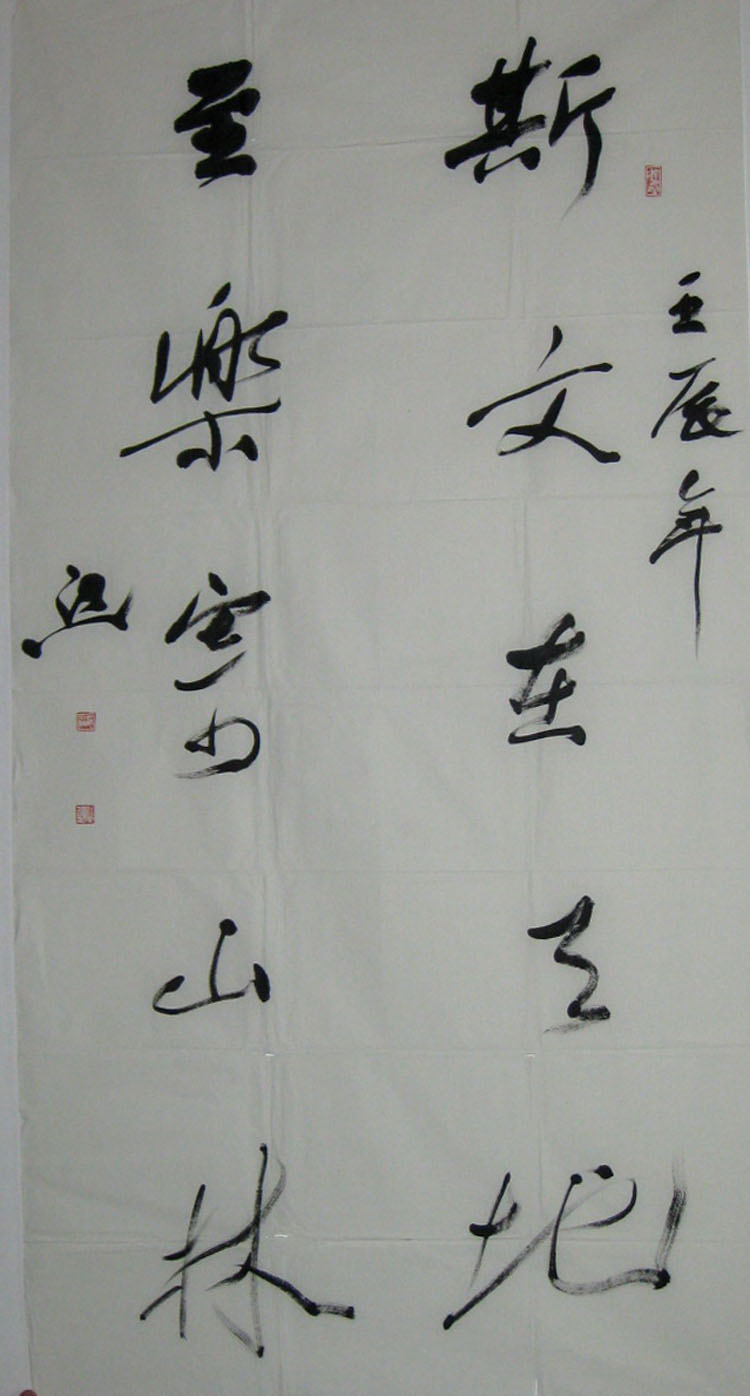 壬辰年
斯文在天地
至樂寄山林